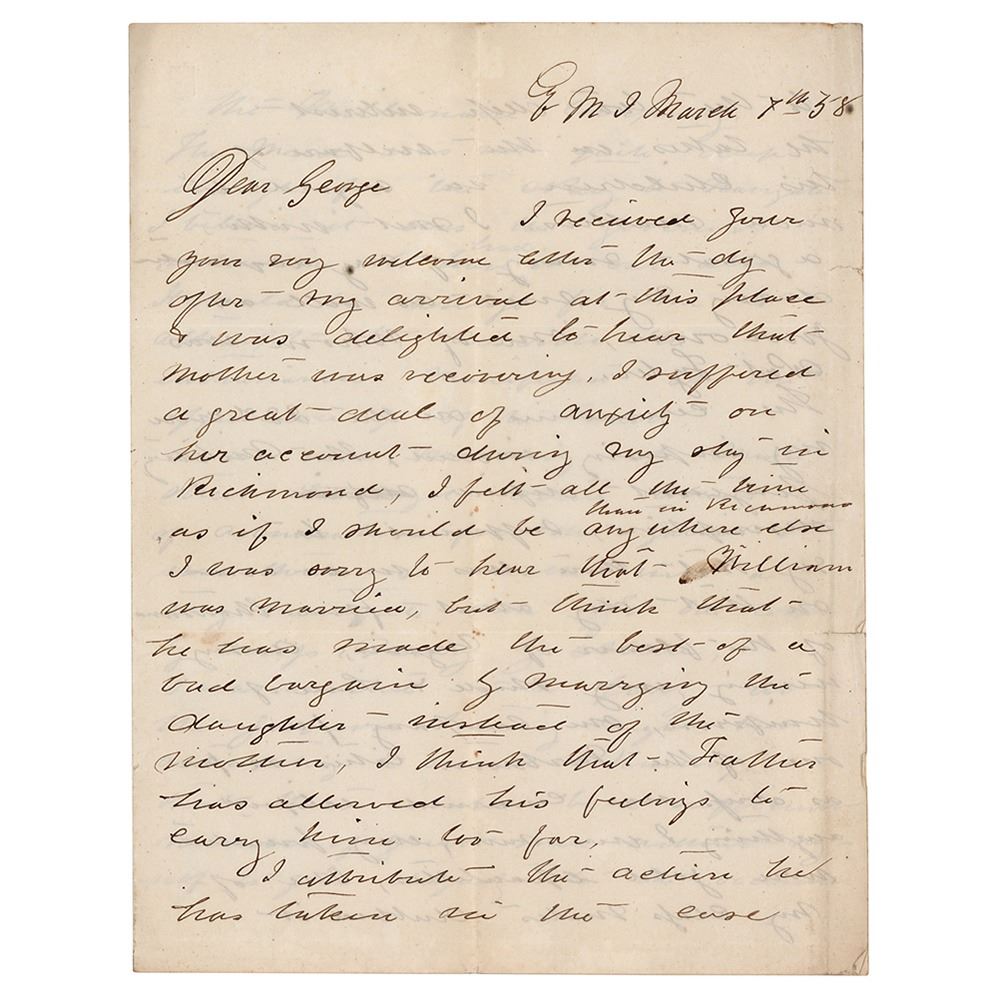 E M I March 7th 58
Dear George
I received your
your very welcome letter the dy
after my arrival at this place
I was delighted to hear that
Mother was recovering, I suffered
a great deal of anxiety on
her account during my stay in
Richmond, I felt all the time
than in Richmond
as if I should be anywhere else
I was sorry to hear that William
was married, but think that
he has made the best of a
bad bargain by marrying the
daughter instead of the
mother, I think that Father
has allowed his feelings to
carry him too far,
I attribute the action he
has taken in the case